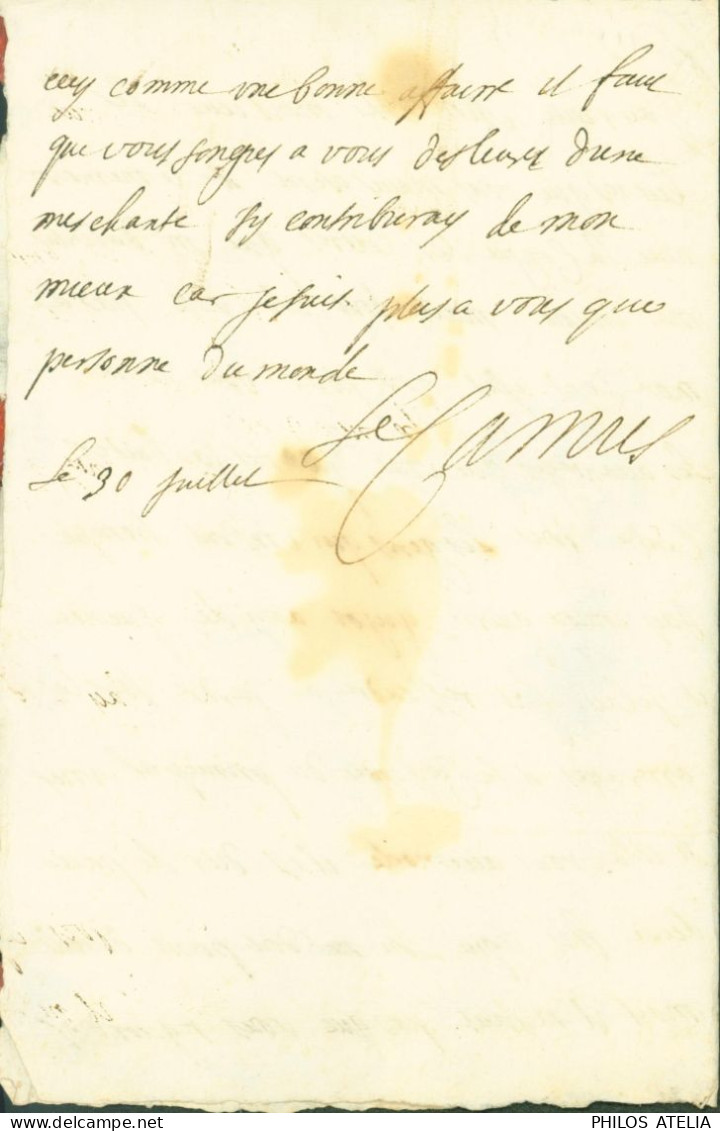 cecy comme une bonne affaire il faut
que vous songies a vous desliurer dune
meschante jy contribueray de mon
mieux car je suis plus a vous que
personne du monde
Le Camus
Le 30 juillet
PHILOS ATELIA